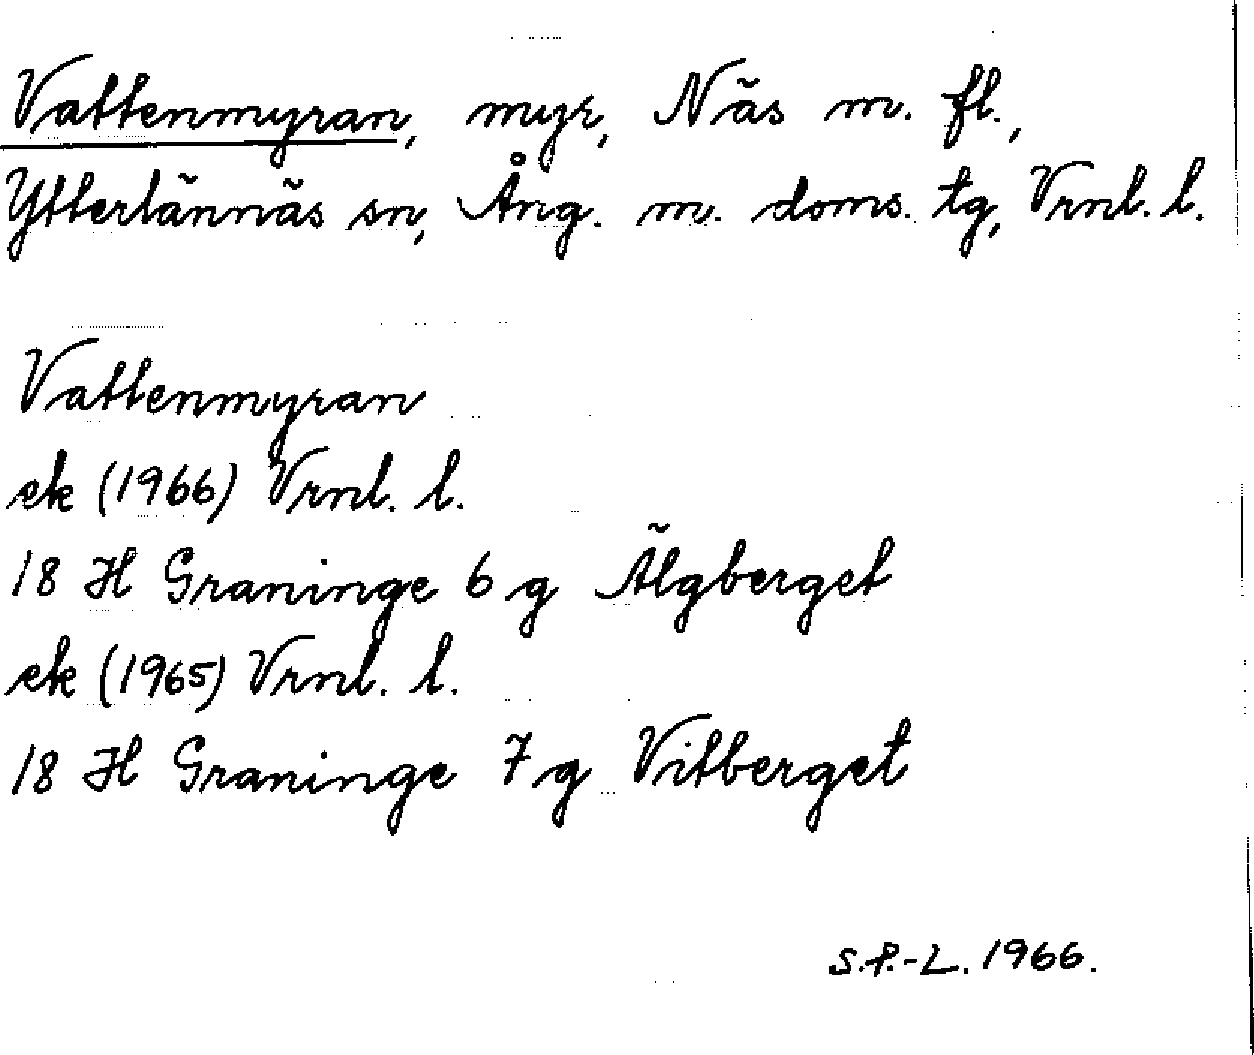 Vattenmyran, myr, Näs m. fl.,
Ytterlännäs sn, Ång. m. doms. tg, Vrnl. l.
Vattenmyran
ek (1966) Vrnl. l.
18 H Graninge 6 g Älgberget
ek (1965) Vrnl. l.
18 H Graninge 7 g Vitberget
S.P.-L. 1966.